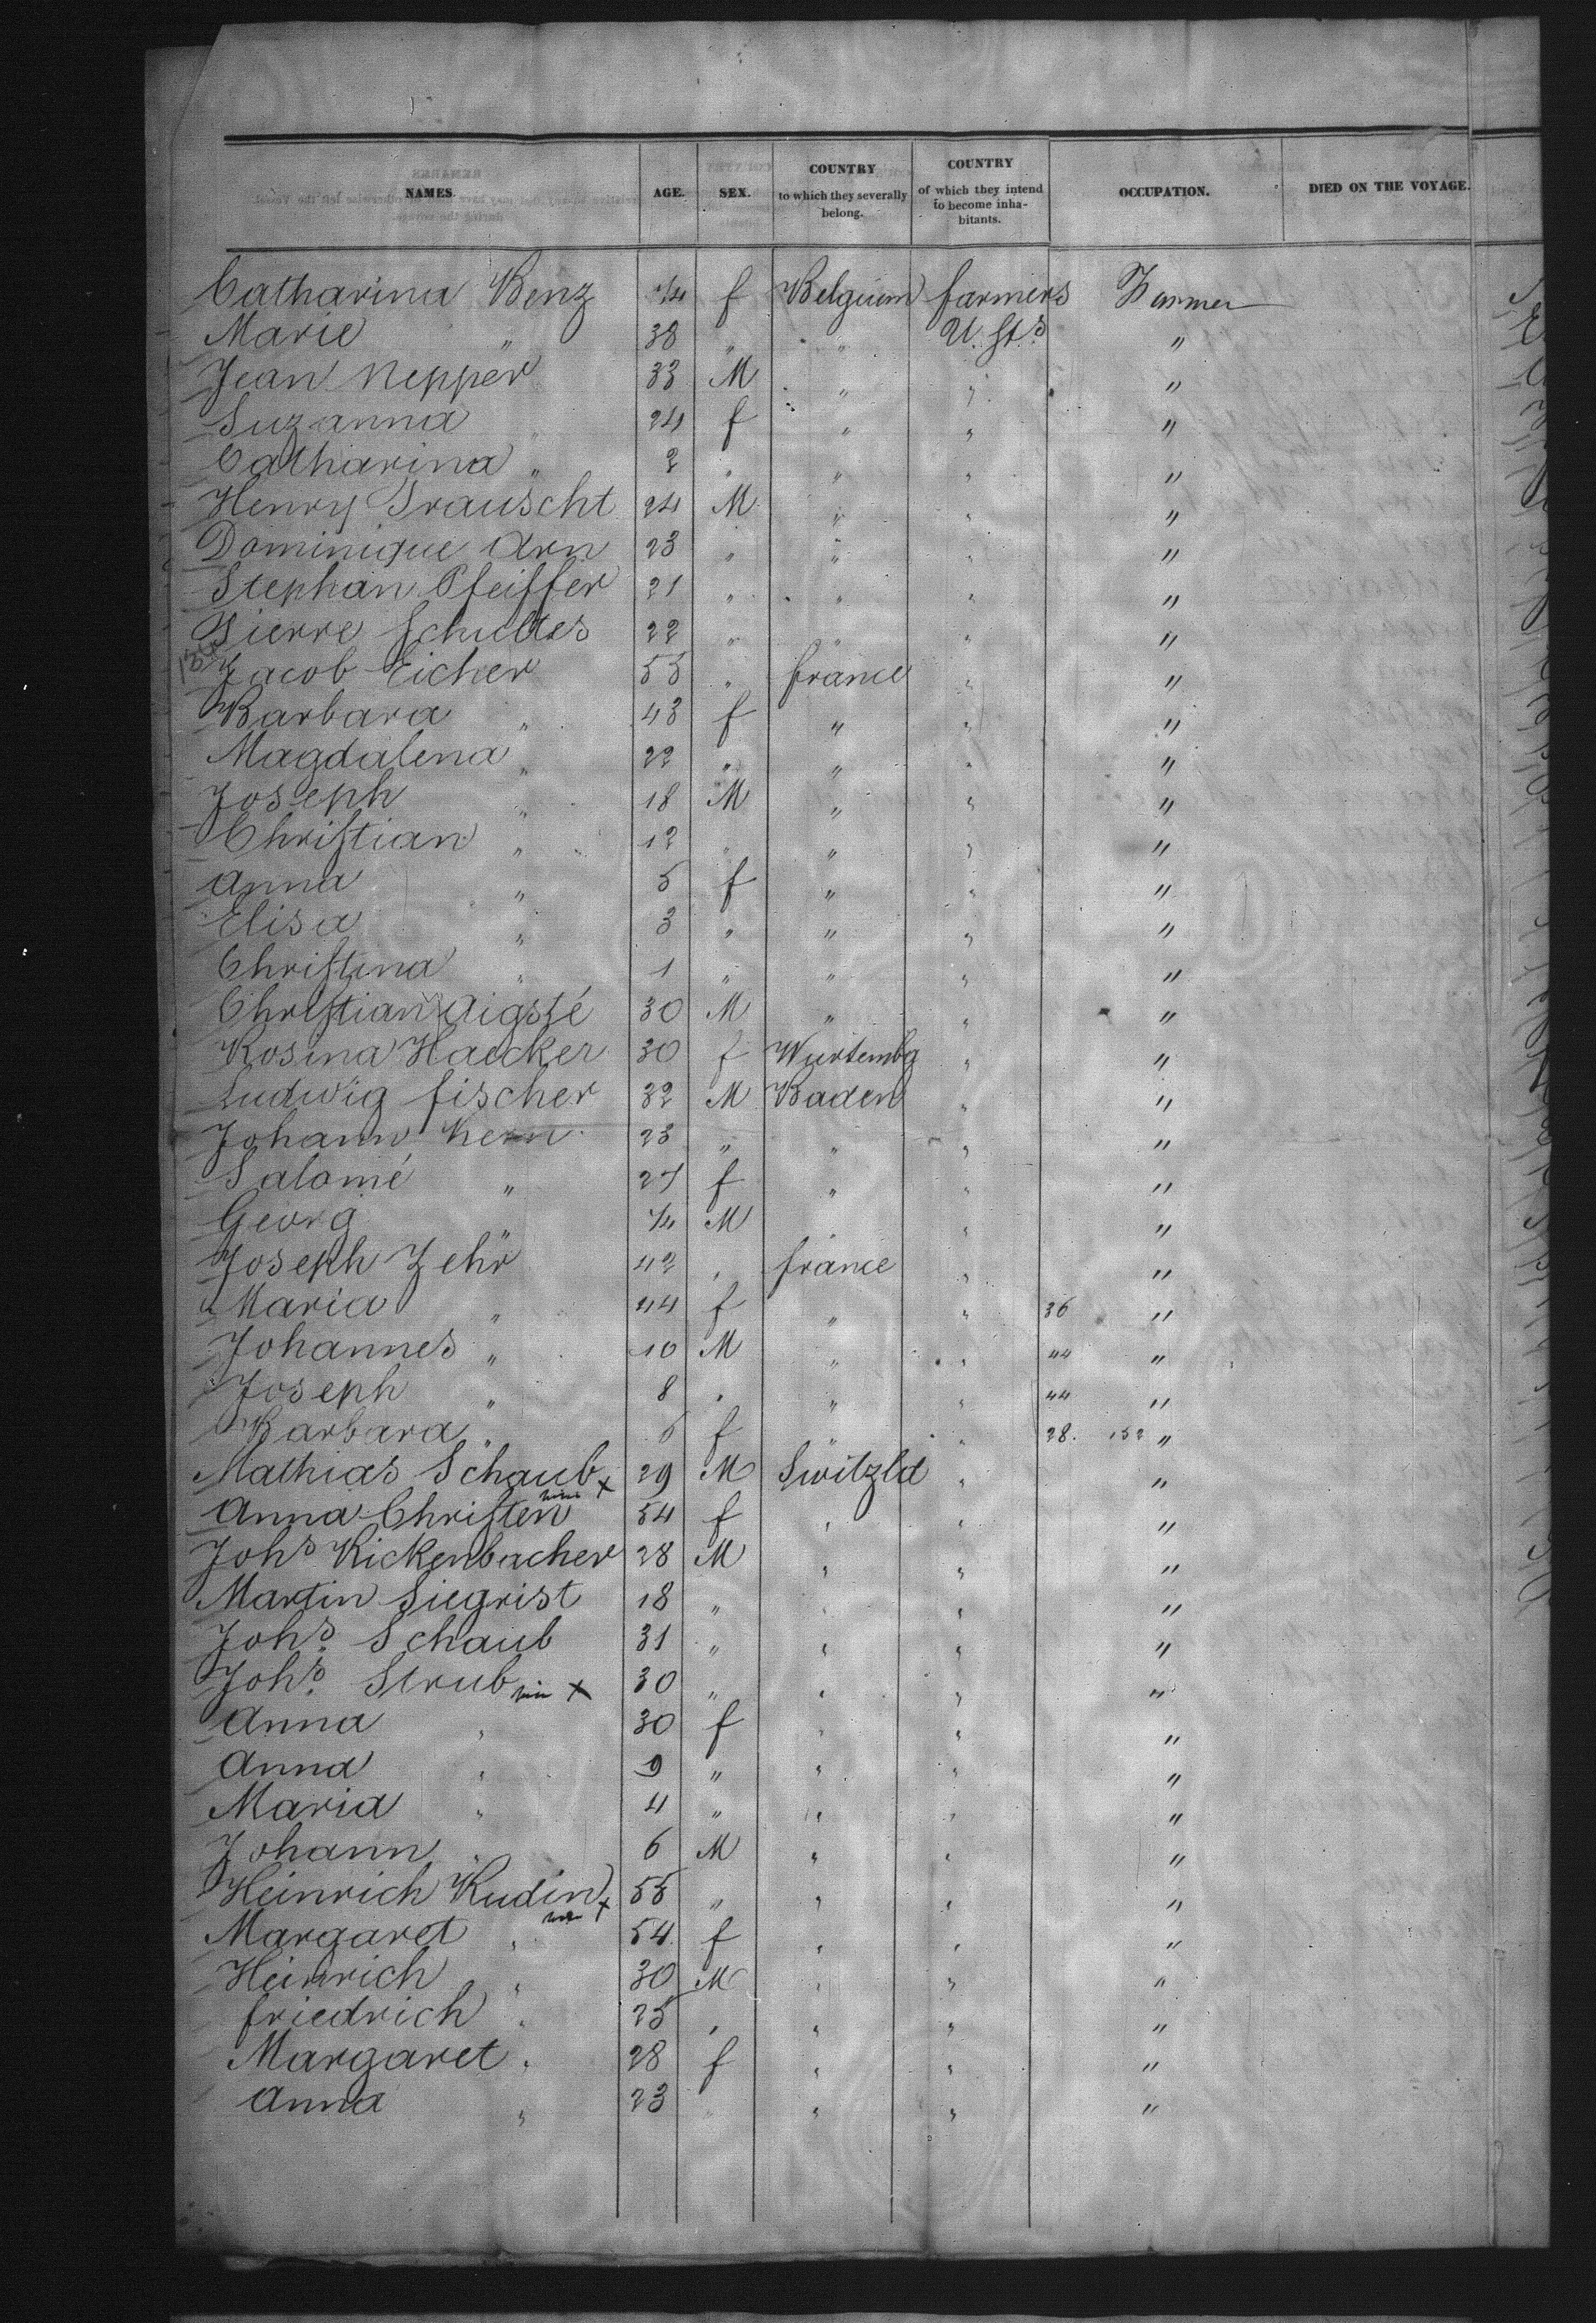 NAMES. AGE. SEX. COUNTRY to which they severally belong. COUNTRY of which they intend to become inhabitants. OCCUPATION. DIED ON THE VOYAGE.
Catharina Benz 1/4 f Belgium farmers Farmer
Marie " 38 " " U. Sts "
Jean Nepper 33 M " " "
Suzanna " 24 f " " "
Catharina " 2 " " " "
Henry Trauscht 24 M " " "
Dominique Arn 23 " " " "
Stephan Pfeiffer 21 " " " "
Pierre Schultes 22 " " " "
Jacob Eicher 55 " france " "
Barbara " 43 f " " "
Magdalena " 22 " " " "
Joseph " 18 M " " "
Christian " 12 " " " "
Anna " 5 f " " "
Elisa " 3 " " " "
Christina " 1 " " " "
Christian Aigsté 30 M " " "
Rosina Haecker 30 f Wurtembg " "
Ludwig fischer 32 M Baden " "
Johann Kern 23 " " " "
Salomé " 27 f " " "
Georg " 1/4 M " " "
Joseph Zehr 42 " france " "
Maria " 44 f " " 36 "
Johannes " 10 M " " 44 "
Joseph " 8 " " " 44 "
Barbara " 6 f " " 28. 152 "
Mathias Schaub x 29 M Switzld " "
Anna Christen 54 f " " "
Johs Rickenbacher 28 M " " "
Martin Siegrist 18 " " " "
Johs. Schaub 31 " " " "
Johs. Strub x 30 " " " "
Anna " 30 f " " "
Anna " 9 " " " "
Maria " 4 " " " "
Johann " 6 M " " "
Heinrich Rudin x 55 " " " "
Margaret " 54 f " " "
Heinrich " 30 M " " "
friedrich " 25 " " " "
Margaret " 28 f " " "
Anna " 23 " " "